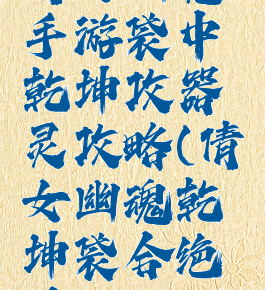 手游袋中
乾坤攻器
灵攻略(倩
女幽魂乾
坤袋合绝